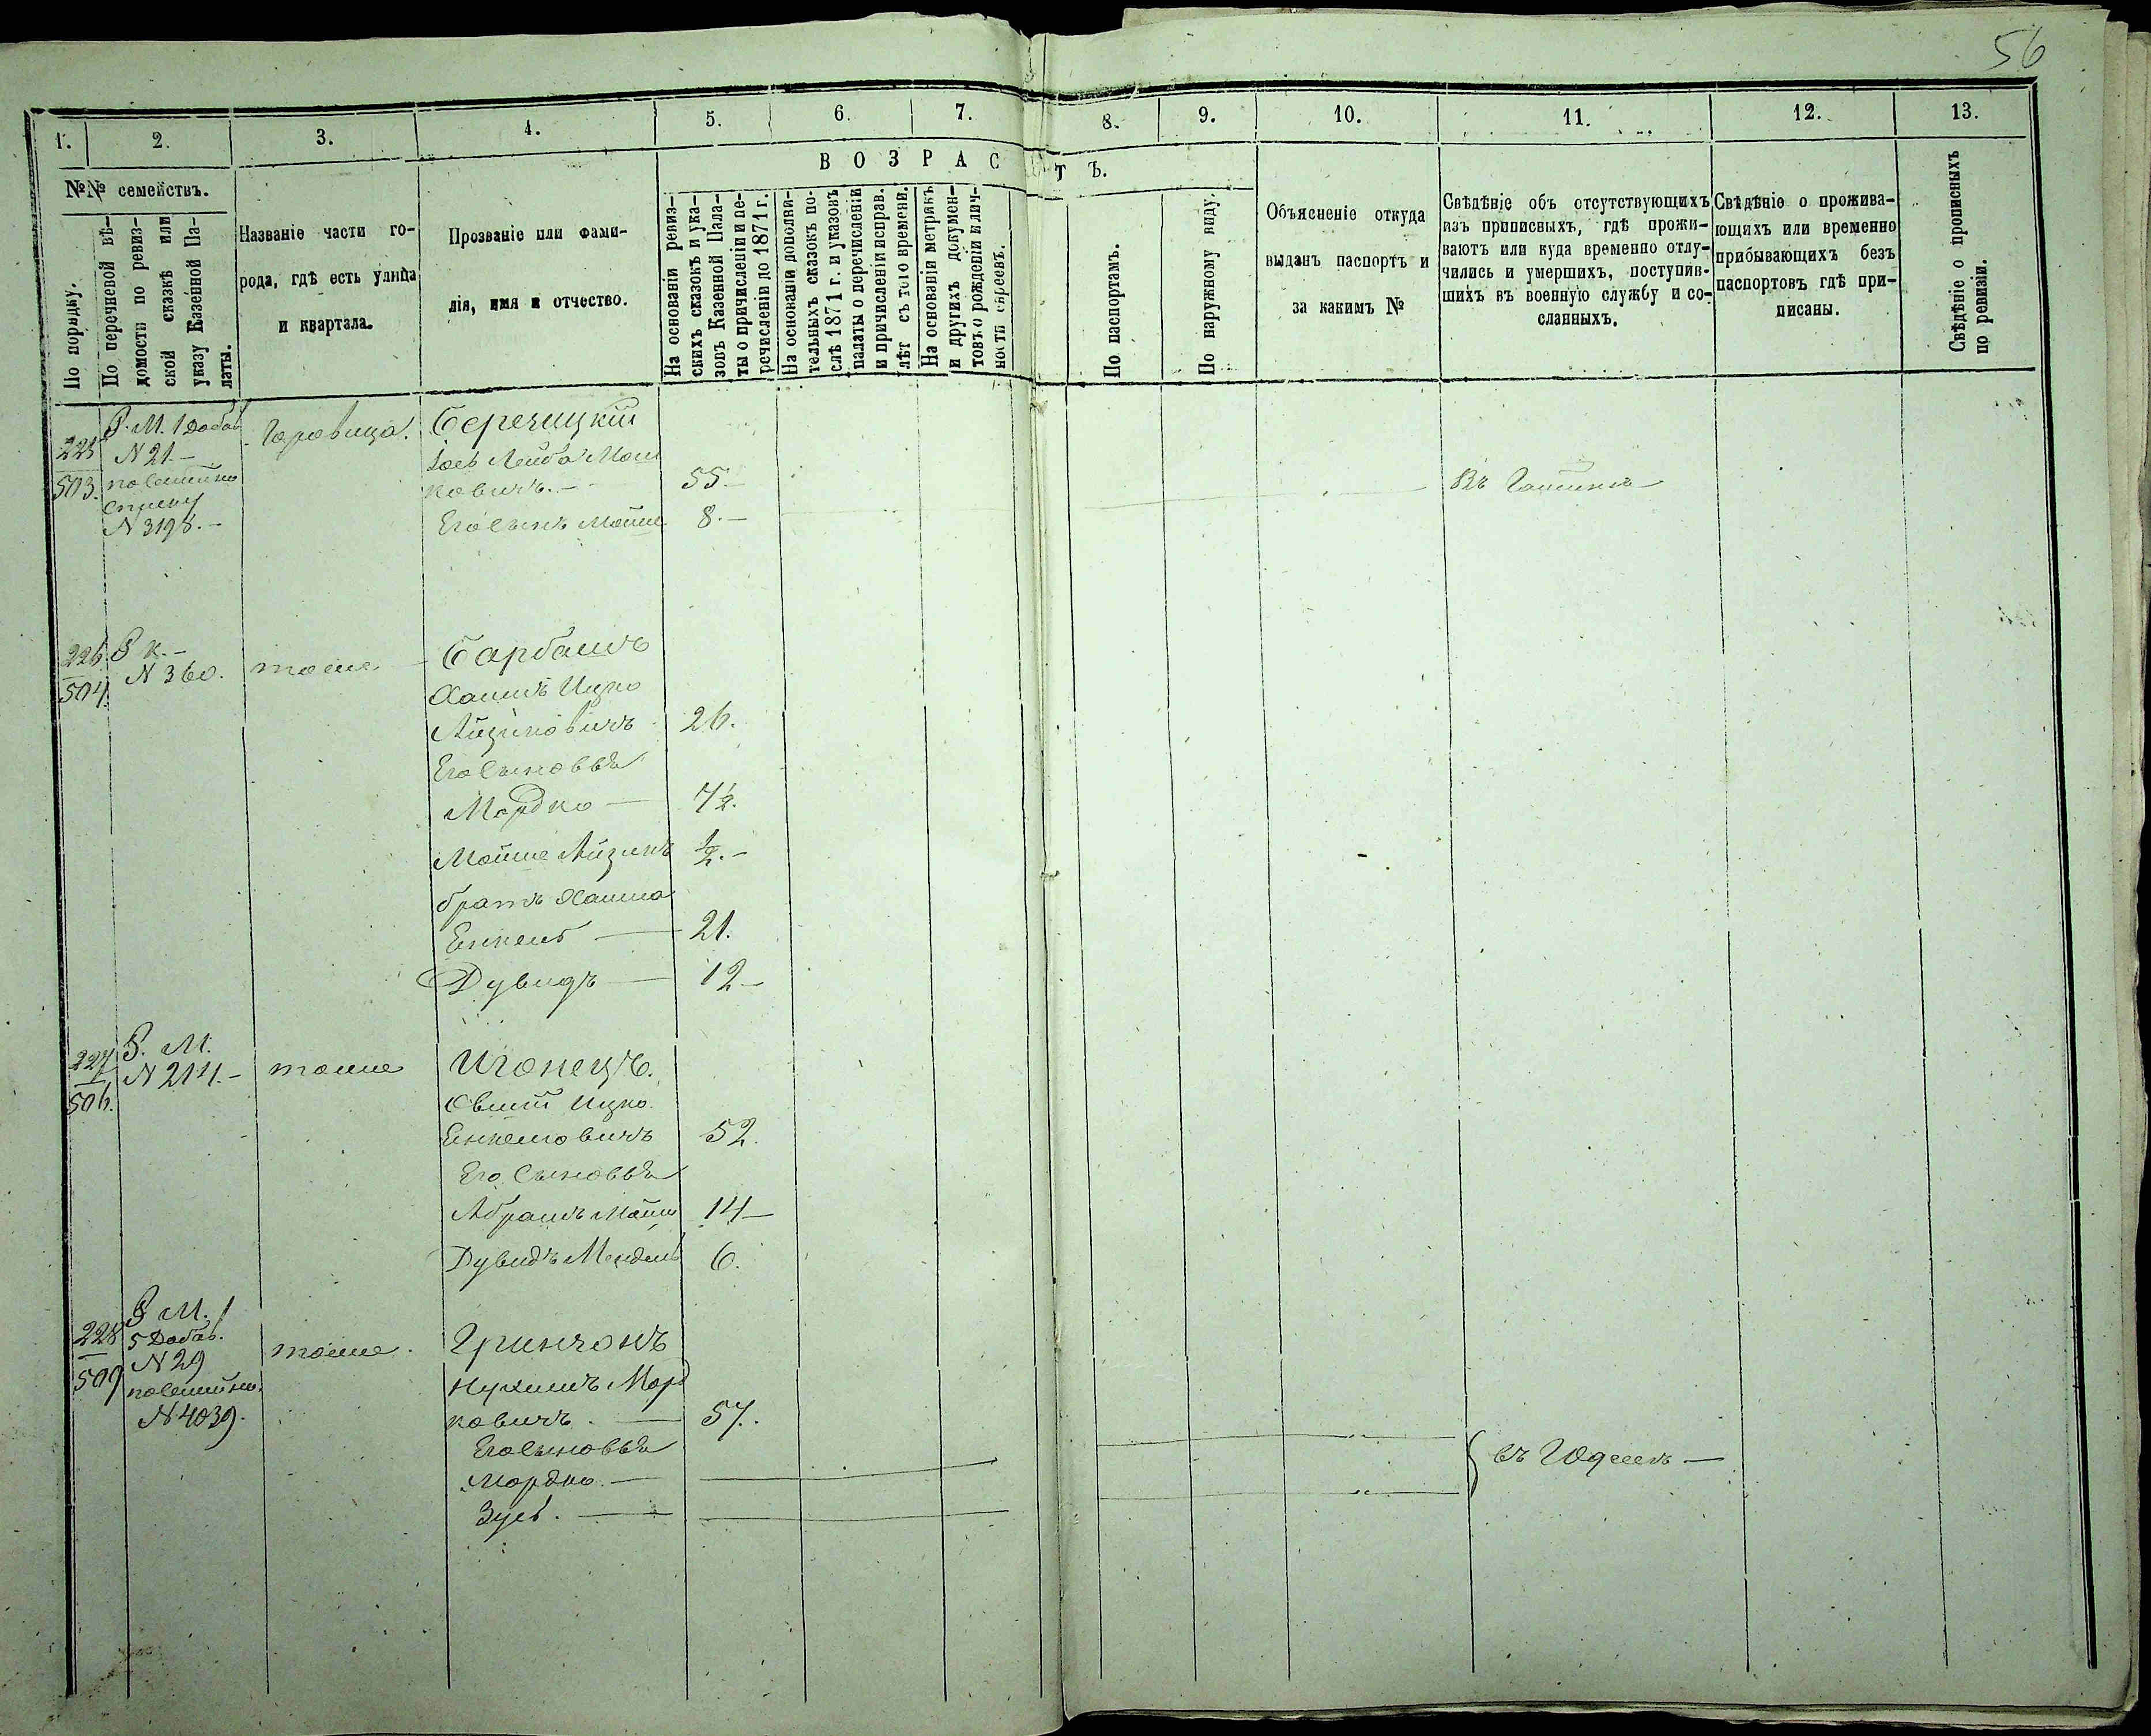 56
1. 2. 3. 4. 5. 6. 7. 8. 9. 10. 11. 12. 13.
№№ семействъ.
По порядку.
По перечневой вѣ-
домости по ревиз-
ской сказкѣ или
указу Казенной Па-
латы.
Названіе части го-
рода, гдѣ есть улица
и квартала.
Прозваніе или фами-
лія, имя и отчество.
ВОЗРАСТЪ.
На основаніи ревиз-
скихъ сказокъ и ука-
зовъ Казенной Пала-
ты о причисленіи и пе-
речисленіи до 1871 г.
На основаніи дополни-
тельныхъ сказокъ по-
слѣ 1871 г. и указовъ
палаты о перечисленіи
и причисленіи исправ.
лѣт съ того времени.
На основаніи метрикъ
и другихъ докумен-
товъ о рожденіи и лич-
ности евреевъ.
По паспортамъ.
По наружному виду.
Объясненіе откуда
выданъ паспортъ и
за какимъ №
Свѣдѣніе объ отсутствующихъ
изъ приписныхъ, гдѣ прожи-
ваютъ или куда временно отлу-
чились и умершихъ, поступив-
шихъ въ военную службу и со-
сланныхъ.
Свѣдѣніе о прожива-
ющихъ или временно
прибывающихъ безъ
паспортовъ гдѣ при-
писаны.
Свѣдѣніе о прописныхъ
по ревизіи.
225
503.
Р. М. 1 Добав
N 21.-
посемейно
списку
N 3198.-
Беречицкій
Лейба Мош
ковичъ. 55
Его сынъ Мойше 8.-
Въ
226
504.
Р К.-
N 360.
тоже
Барбашъ
Хаимъ Ицко
Айзиковичъ 26.
Его сыновья
Мордко 7½.
Мойше Айзикъ ½.-
братъ Хаима
Енкель 21.
Дувидъ 12-
227
506.
Р. М.
N 214.-
тоже
Ицко
Енкелевичъ 52.
Его Сыновья
Абрамъ Мойше 14-
Дувидъ Мендель 6.
228
509
Р М.
5 Добав.
N 29
посемейно.
N 4039.
тоже.
Гринчонъ
Нухимъ Морд
ковичъ. 57.
Его сыновья
Мордко.
Зусь.
въ